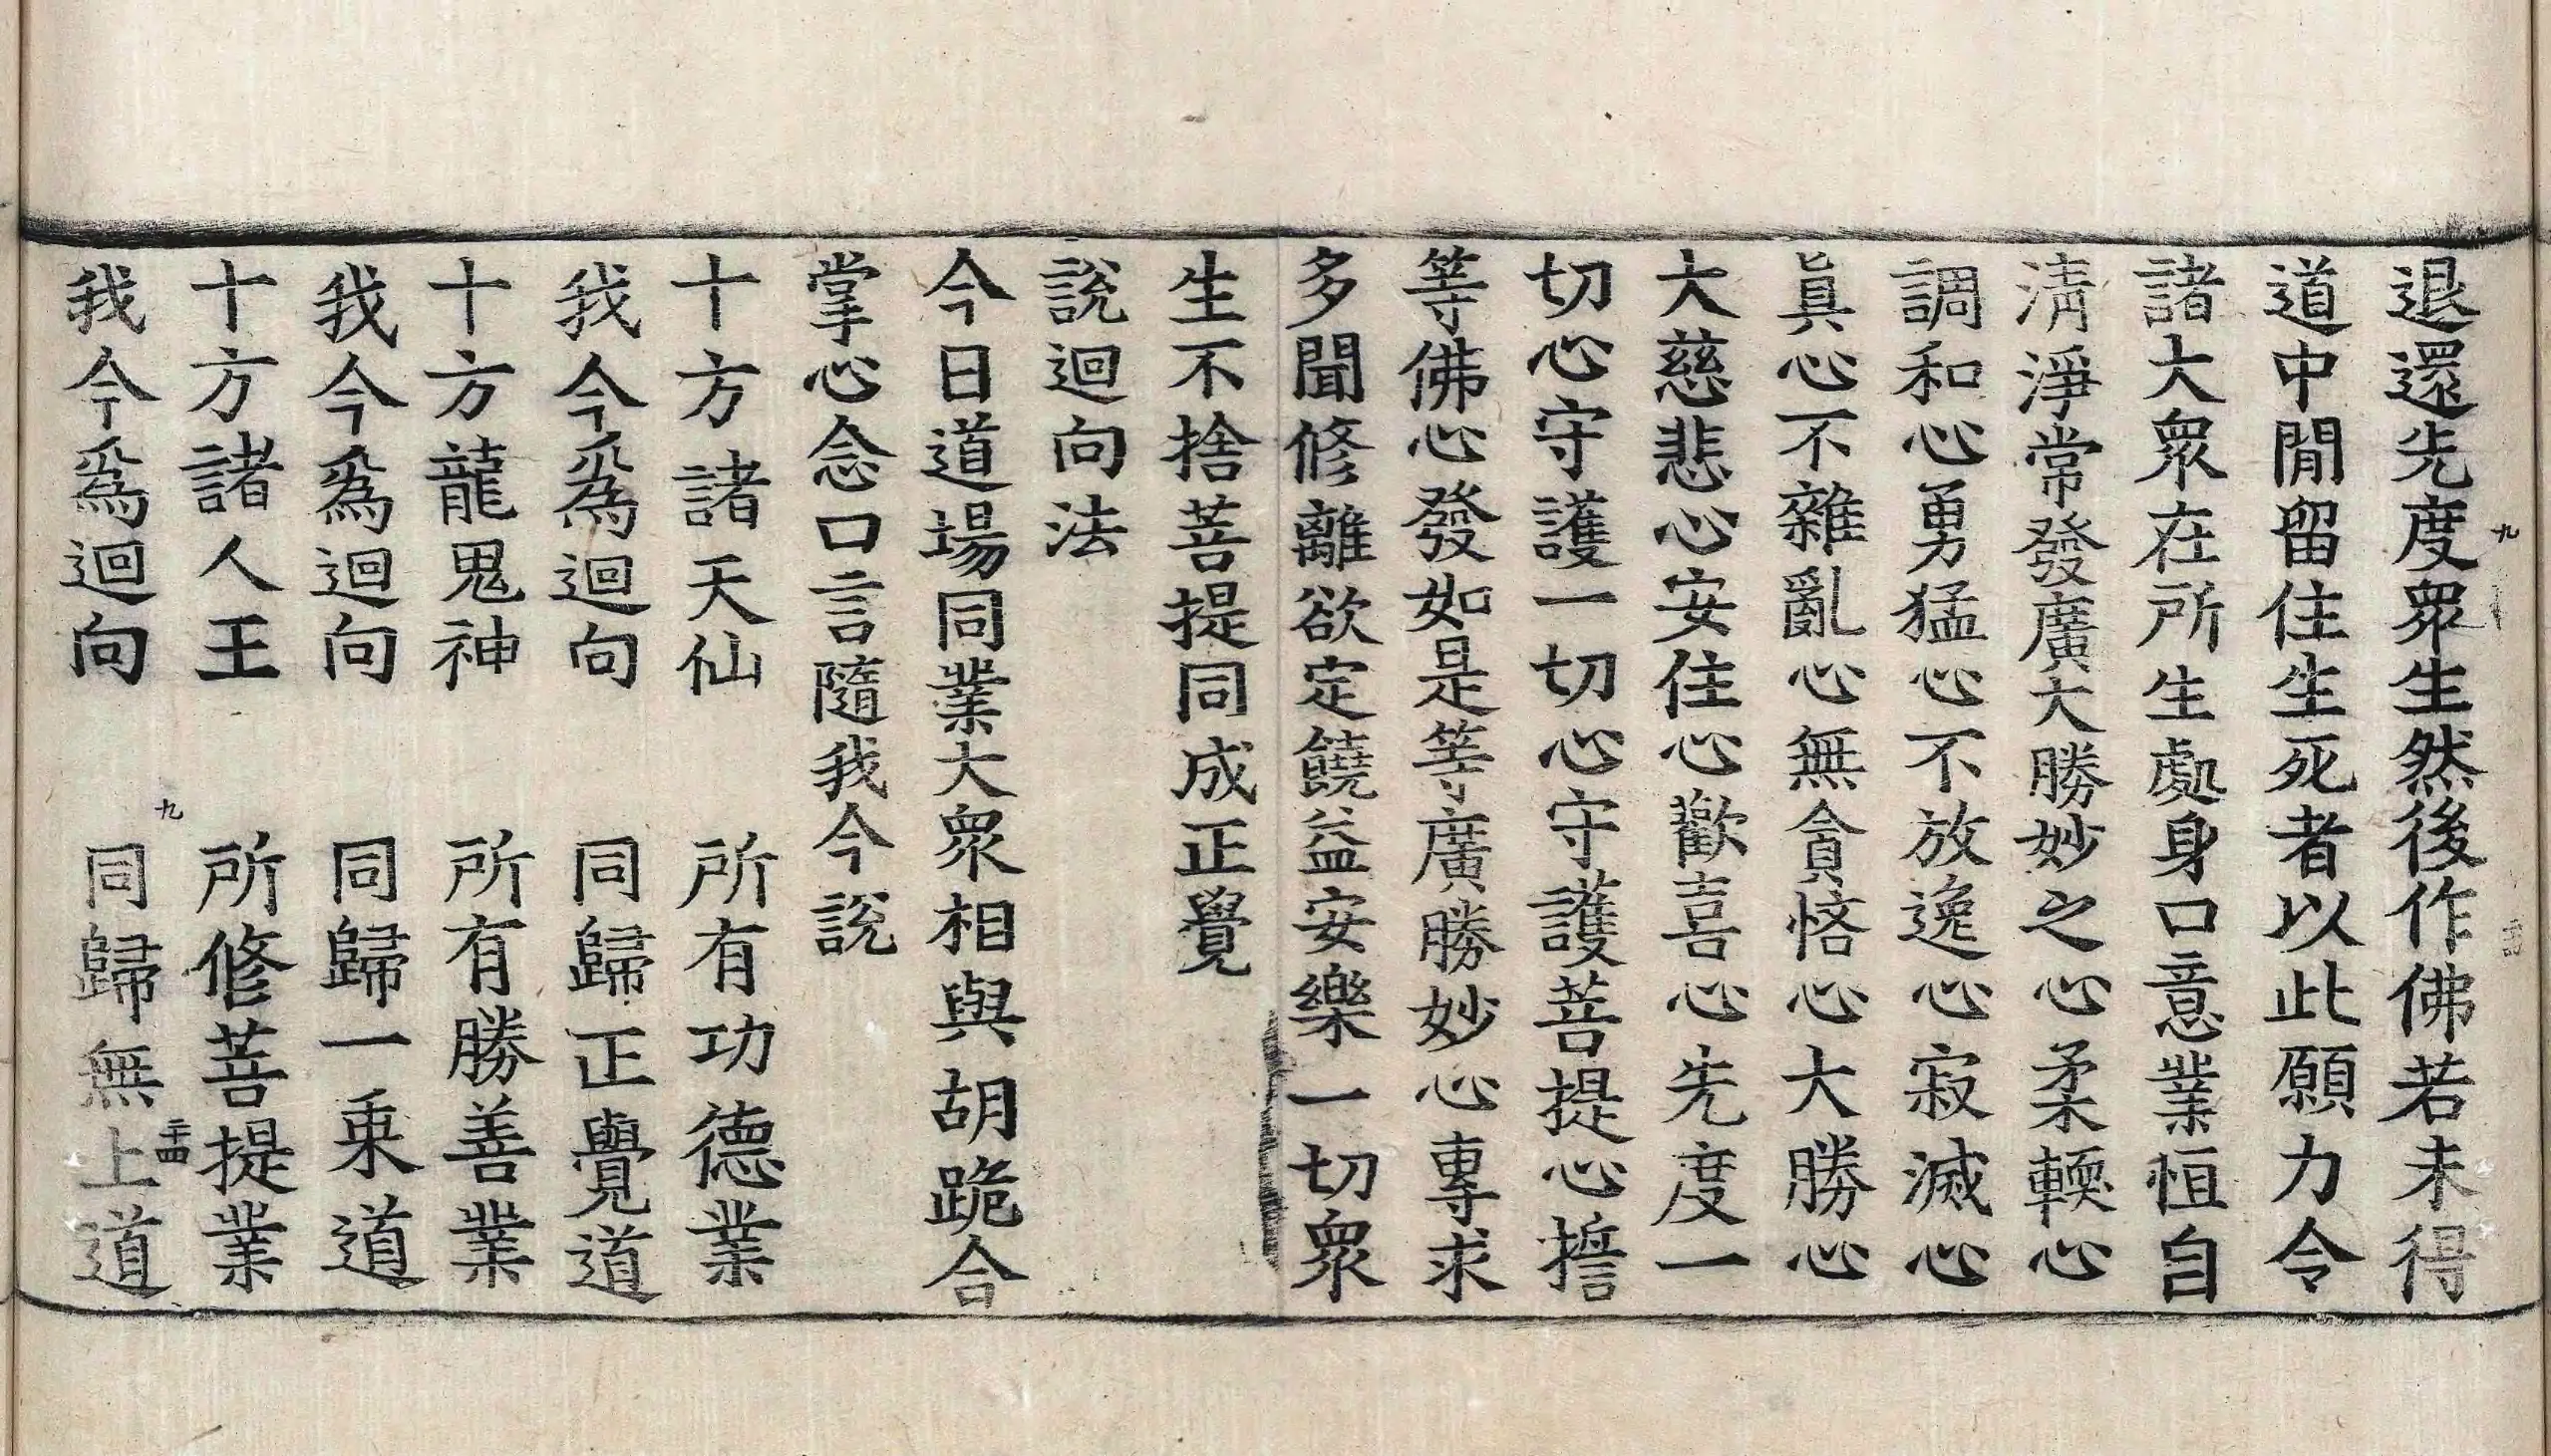 退還先度眾生然後作佛若未得
道中閒留住生死者以此願力令
諸大眾在所生處身口意業恒自
淸淨常發廣大勝妙之心柔輭心
調和心勇猛心不放逸心寂滅心
眞心不雜亂心無貪悋心大勝心
大慈悲心安住心歡喜心先度一
切心守護一切心守護菩提心誓
等佛心發如是等廣勝妙心專求
多聞修離欲定饒益安樂一切眾
生不捨菩提同成正覺
說迴向法
今日道場同業大眾相與胡跪合
掌心念口言隨我今說
十方諸天仙　所有功德業
我今為迴向　同歸正覺道
十方龍鬼神　所有勝善業
我今為迴向　同歸一乘道
十方諸人王　所修菩提業
九　二十四
我今為迴向　同歸無上道